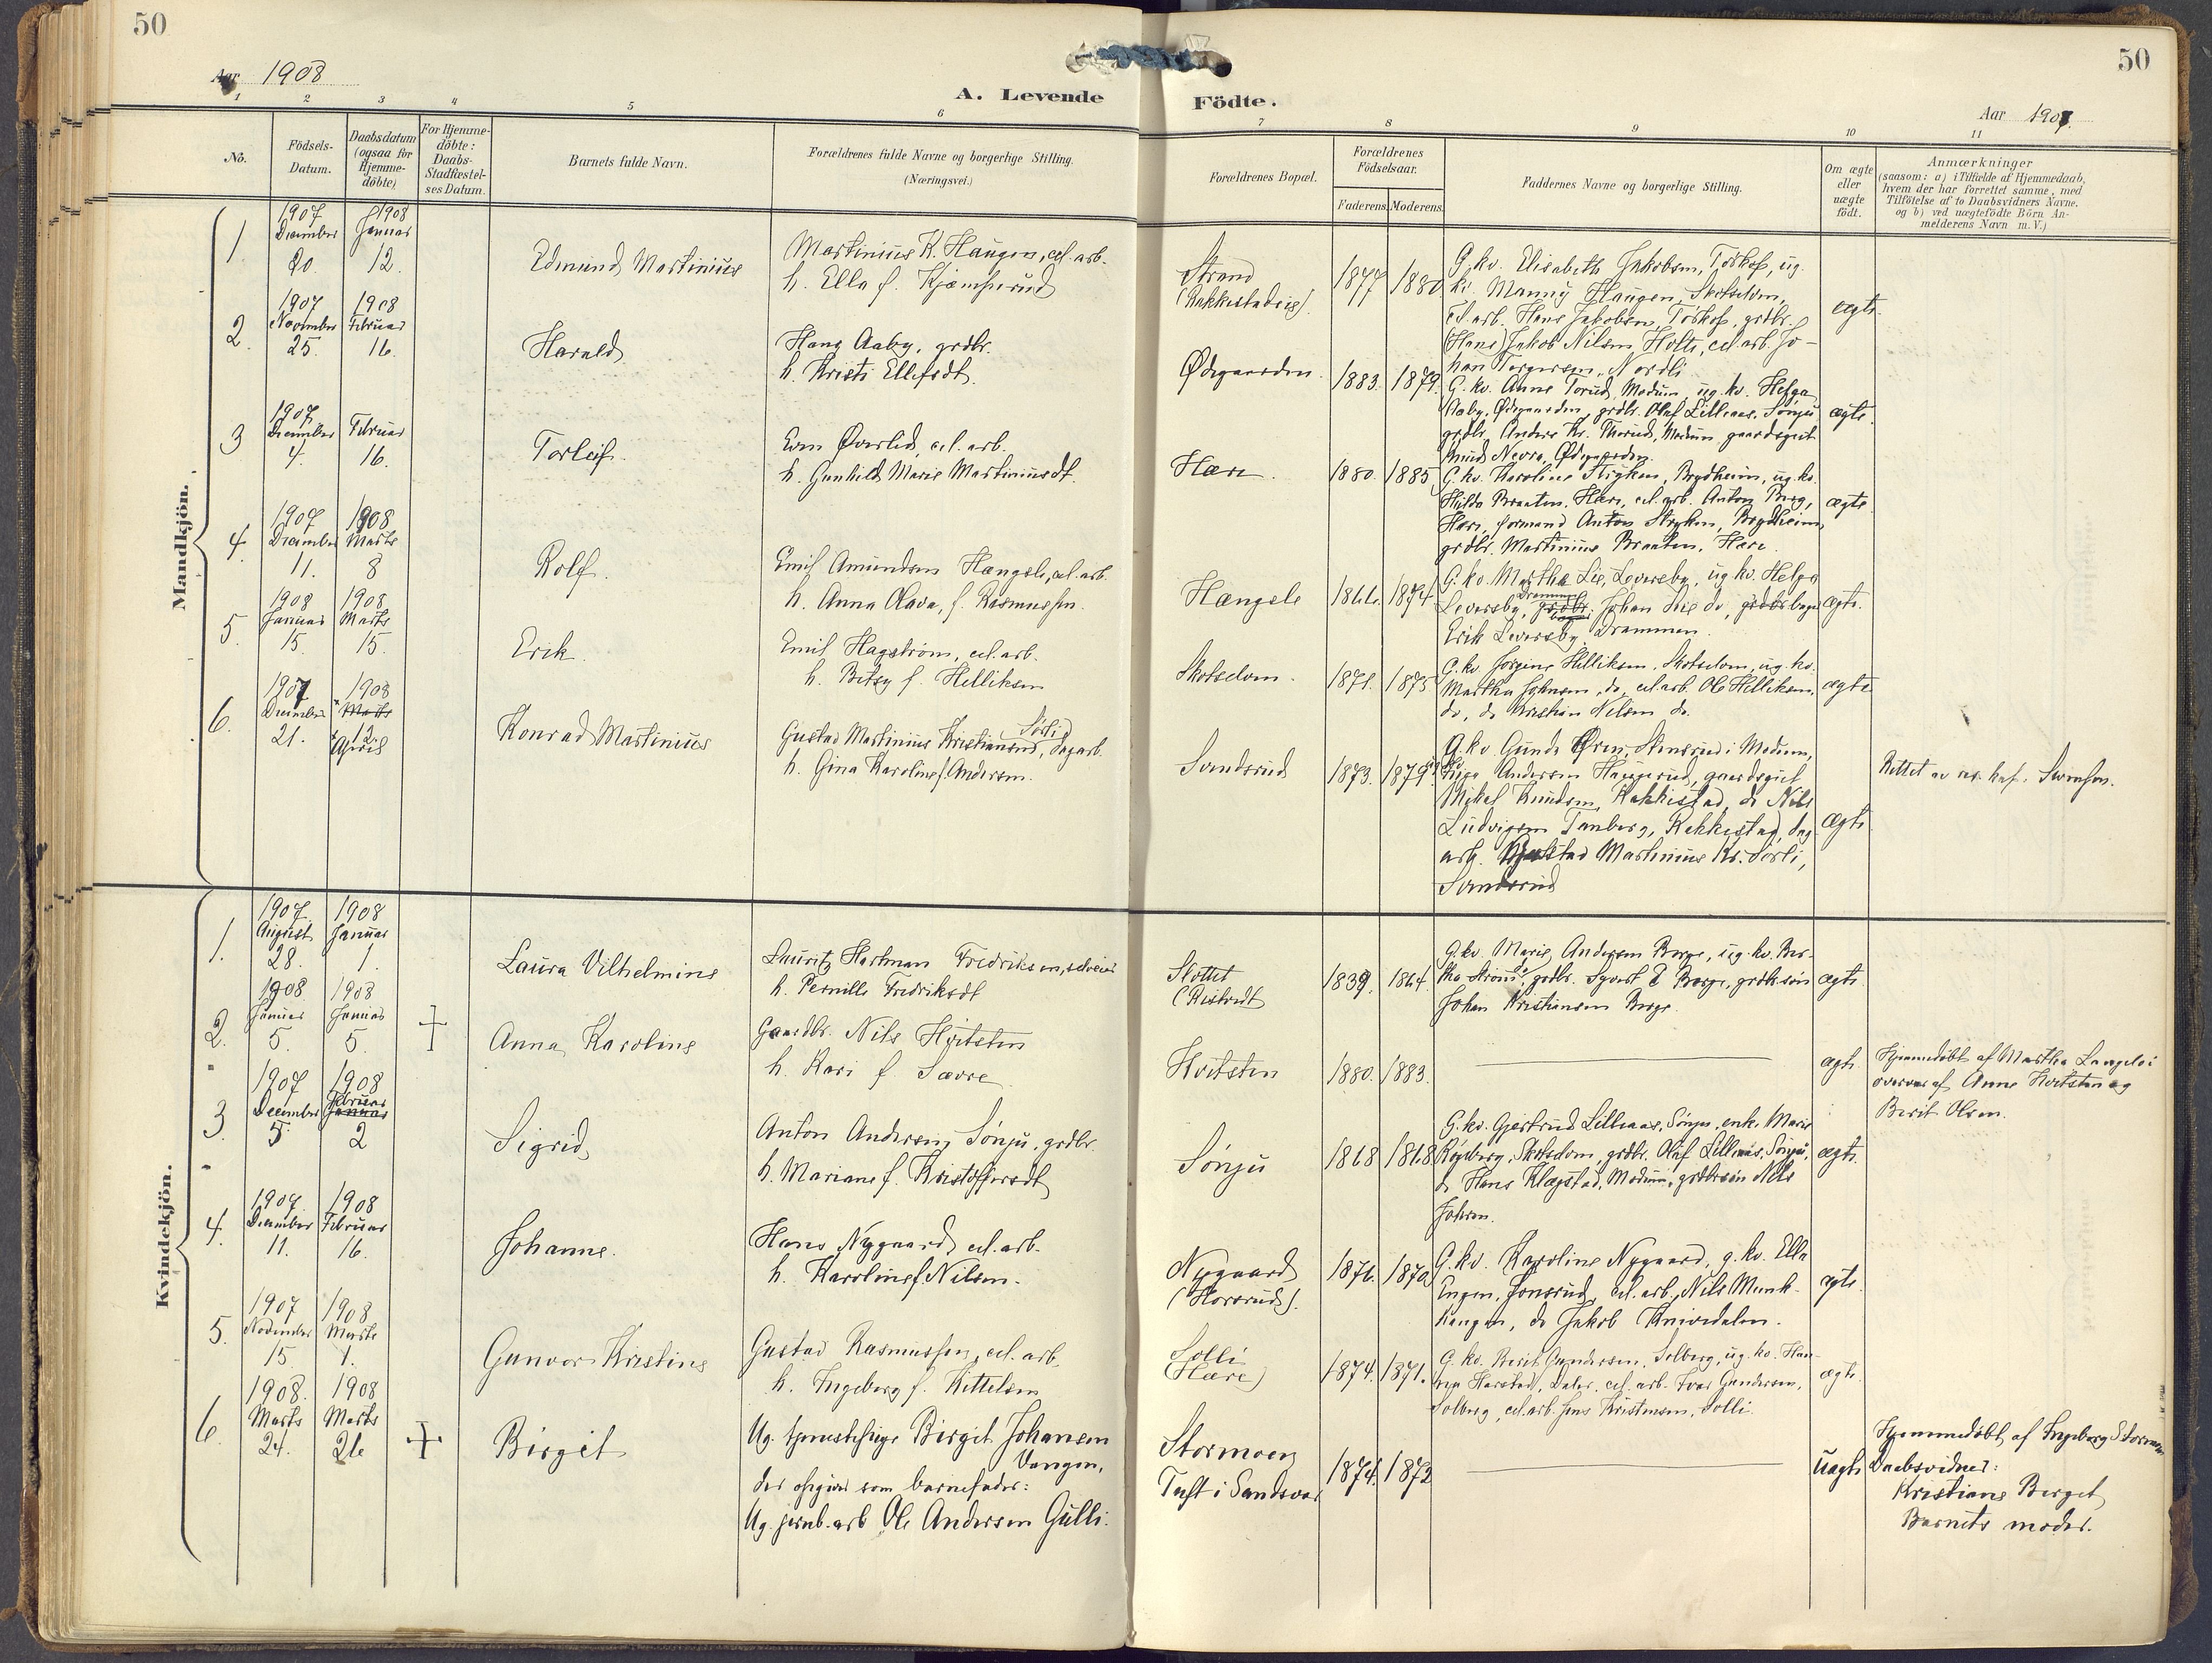 50
50
Aar 1908
A. Levende
Födte.
Aar 1908.
1
2
3
4
5
6
7
8
9
10
11
No.
Födsels-
Datum.
Daabsdatum
(ogsaa for
Hjemme-
döbte)
For Hjemme-
döbte:
Daabs-
Stadfæstel-
ses Datum.
Barnets fulde Navn.
Forældrenes fulde Navne og borgerlige Stilling.
(Næringsvei.)
Forældrenes Bopæl.
Forældrenes
Födselsaar.
Faderens.
Moderens.
Faddernes Navne og borgerlige Stilling.
Om ægte
eller
uægte
födt.
Anmærkninger
(saasom: a) i Tilfælde af Hjemmedaab,
hvem der har forrettet samme, med
Tilföielse af to Daabsvidners Navne.
og b) ved uægtefödte Börn An-
melderens Navn m. V.)
Mandkjön.
1.
1907
December
20.
1908
Januar
12.
Edmund Martinius
Martinius K. Haugen, cel. arb.
h. Ella f. Kjæmperud
Strand
(Rakkestadeie).
1877
1880
G. kv. Elisabeth Jakobsen, Torkop, ug.
kv. Manny Haugen, Skotselven,
cel. arb. Hans Jakobsen, Torkop, grdbr.
(Hans) Jakob Nilsen Holte, cel. arb. Jo-
han Torgersen, Nordli
ægte.
2.
1907
November
25.
1908
Februar
16.
Harald
Hans Aaby, grdbr.
h. Kristi Ellefsdt.
Ødegaarden.
1883.
1879.
G. kv. Anne Torud, Modum, ug. kv. Helga
Aaby, Ødegaarden, grdbr. Olaf Lilleaas, Sønju
grdbr. Anders Kr. Thorud, Modum, gaardsgut
Knud Nevra, Ødegaarden.
ægte.
3
1907.
December
4.
Februar
16.
Torleif.
Even Øverlid, cel. arb.
h. Gunhild Marie Martiniusdt.
Hære.
1880.
1885
G. kv. Karoline Stryken, Brydheim, ug. kv.
Hulda Braaten, Hære, cel. arb. Anton Berg,
Hære, formand Anton Stryken, Brydheim,
grdbr. Martinius Braaten, Hære.
ægte.
4.
1907
December
11.
1908
Marts
8
Rolf.
Emil Amundsen Hængsle, cel. arb.
h. Anna Olava, f. Rasmussen.
Hængsle
1866.
1874
G. kv. Martha Lie, Leversby, ug. kv. Helga
Leversby, Drammen, Johan Lie do,
Erik Leversby, Drammen.
ægte.
5.
1908
Januar
15.
1908
Marts
15.
Erik.
Emil Hagström, cel. arb.
h. Betsy f. Helliksen
Skotselven.
1871.
1875
G. kv. Jorgine Helliksen, Skotselven, ug. kv.
Martha Johnsen, do, cel. arb. Ole Helliksen,
do, do Kristian Nilsen do.
ægte
6.
1907
December
21.
1908
Marts
12.
April
Konrad Martinius
Gustav Martinius Kristiansen Sørli, dagarb.
h. Gina Karoline f. Andersen.
Sandsrud
1873.
1879
G. kv. Gunda Øren, Stensrud i Modum,
Andersen Haugerud, gaardsgut
Mikal Knudsen, Rakkestad, do Nils
Ludvigsen Tanberg, Rakkestad, dag-
arb. Gustav Martinius Kr. Sørli,
Sandsrud
ægte.
Rettet av res. kap. Svensen.
Kvindekjön.
1.
1907
August
28.
1908
Januar
1.
Laura Vilhelmine
Lauritz Hartman Fredriksen, selveier
h. Pernille Fredriksdt
Slottet
1839.
1864.
G. kv. Marie Andersen Berge, ug. kv. Ber-
tha Strøm, grdbr. Syvert E Berge, grdbr.søn
Johan Kristiansen Berge.
ægte.
2.
1908
Januar
5.
1908
Januar
5.
Anna Karoline
Gaardbr. Nils Hvitsten
h. Kari f. Sævre
Hvitsten
1880.
1883.
ægte.
Hjemmedöbt af Martha Langeløi
overvær af Anne Hvitsten og
Berit Olsen.
3
1907
December
5.
1908
Februar
Januar
2
Sigrid
Anton Andersen, Sønju, grdbr.
h. Mariane f. Kristoffersdt
Sønju
1868
1868
G. kv. Gjertrud Lilleaas, Sønju, enke Marie
Røgeberg, Skotselven, grdbr. Olaf Lilleaas, Sønju,
do Hans Klægstad, Modum, grdbrsøn Nils
Johsen.
ægte.
4.
1907.
December
11.
1908
Februar
16.
Johanne.
Hans Nygaard, cel. arb.
h. Karoline f. Nilsen.
Nygaard
(Horsrud).
1876.
1870
G. kv. Karoline Nygaard, g. kv. Ella
Engen, Jonsrud, cel. arb. Nils Munk-
haugen, do Jakob Knivedalen.
ægte.
5.
1907
November
15.
1908
Marts
1.
Gunvor Kristine
Gustav Rasmussen, cel. arb.
h. Ingeborg f. Kittelsen
Solli
(Hære)
1874.
1871.
G. kv. Berit Gundersen, Solberg, ug. kv. Han-
na Harstad, Daler, cel. arb. Ivar Gundersen,
Solberg, cel. arb. Jens Kristensen, Solli.
ægte.
6.
1908.
Marts
24.
1908
Marts
26
Birgit
Ug. tjenestepige Birgit Johansen
Vangen,
der opgiver som barnefader:
Ug. jernb. arb Ole Andersen Gulli.
Stormoen
Tuft i Sandsvær
1874.
1872
uægte
Hjemmedöbt af Ingeborg Stormoen
Daabsvidner:
Kristiane Berget
Barnets moder.